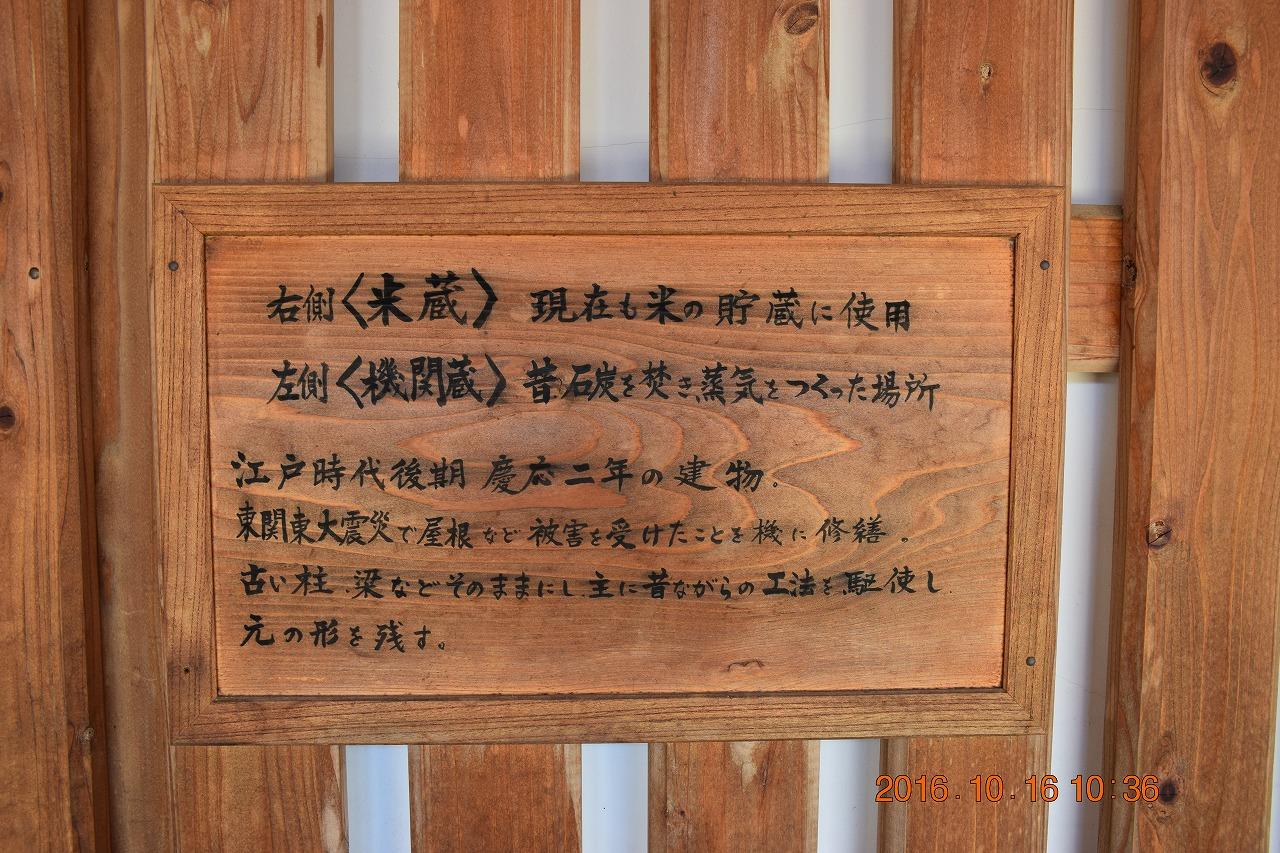 右側〈米蔵〉 現在も米の貯蔵に使用
左側〈機関蔵〉 昔、石炭を焚き、蒸気をつくった場所
江戸時代後期 慶応二年の建物。
東関東大震災で屋根など被害を受けたことを機に修繕。
古い柱、梁などそのままにし、主に昔ながらの工法を駆使し、
元の形を残す。
2016.10.16 10:36